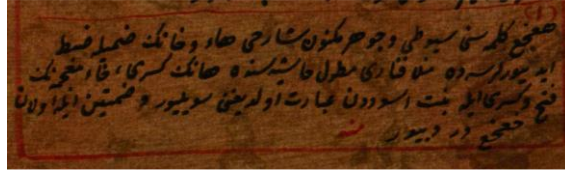 (١)
هعخع كلمه سنى سيوطى وجوهر مكنون شارحى هاء و خانك ضميله ضبط
ايدييورلرسه ده منلا فنارى مطول حاشيه سنده هانك كسرى، خاء معجمه نك
فتح وكسرى ايله بنت اسوددن عبارت اولديغنى سويليور و ضمتين ايله اولان
خعخع در ديييور منه